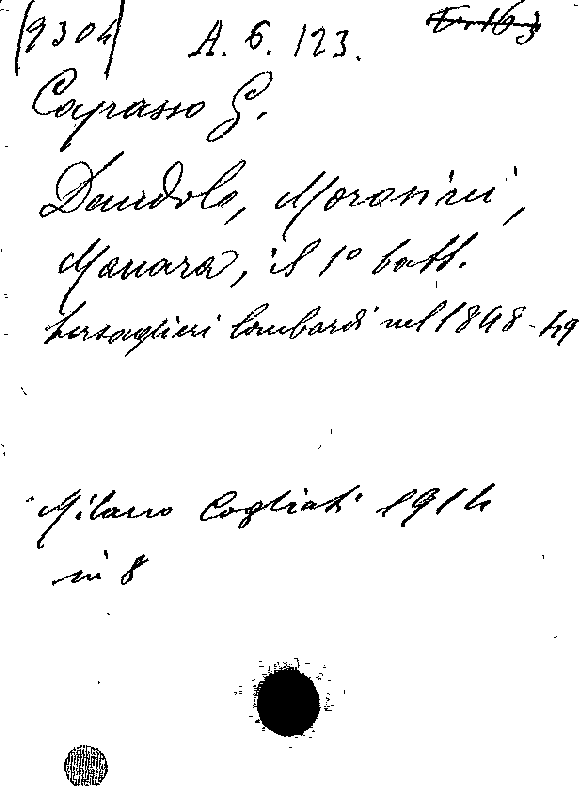 (9304) A. 6. 123.
Capasso G.
Dandolo, Morosini,
Manara, il 1º batt.
bersaglieri lombardi nel 1848-49
Milano Cogliati 1914
in 8